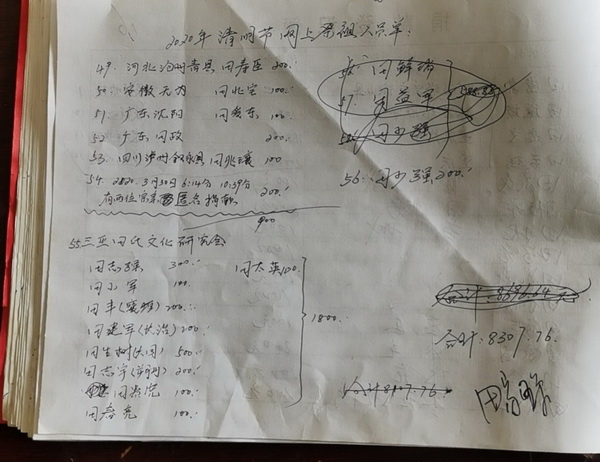 2020年清明节网上祭祖人员单:
49. 河北沧州青县 闫春臣 200.
50. 安徽无为 闫北宝 100.
51. 广东沈阳 闫 东 100.
52. 广东闫政 200.
53. 四川泸州叙永县 闫兆 100
54. 2020.3月30日6:14分 10:39分
有两位宗亲匿名捐款 200.
900
55 三亚闫氏文化研究会
闫志 300.
闫太英100.
闫小军 100.
闫丰 200.
闫建军(长治) 200.
闫生树(大同) 500.
闫志宇 200.
闫 虎 100.
闫春亮 100.
1800.
57. 闫益军
闫少强
56. 闫少强200.
合计:8696.64元
合计:8307.76.
合计8107.76